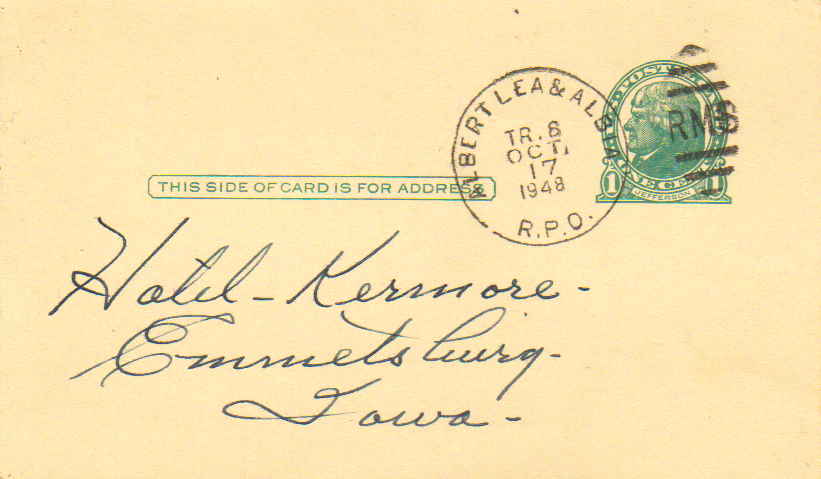 ALBERT LEA & ALBIA
TR. 8
OCT.
17
1948
R.P.O.
RMS
1 1
JEFFERSON
THIS SIDE OF CARD IS FOR ADDRESS
Hotel - Kermore -
Emmetsburg -
Iowa -